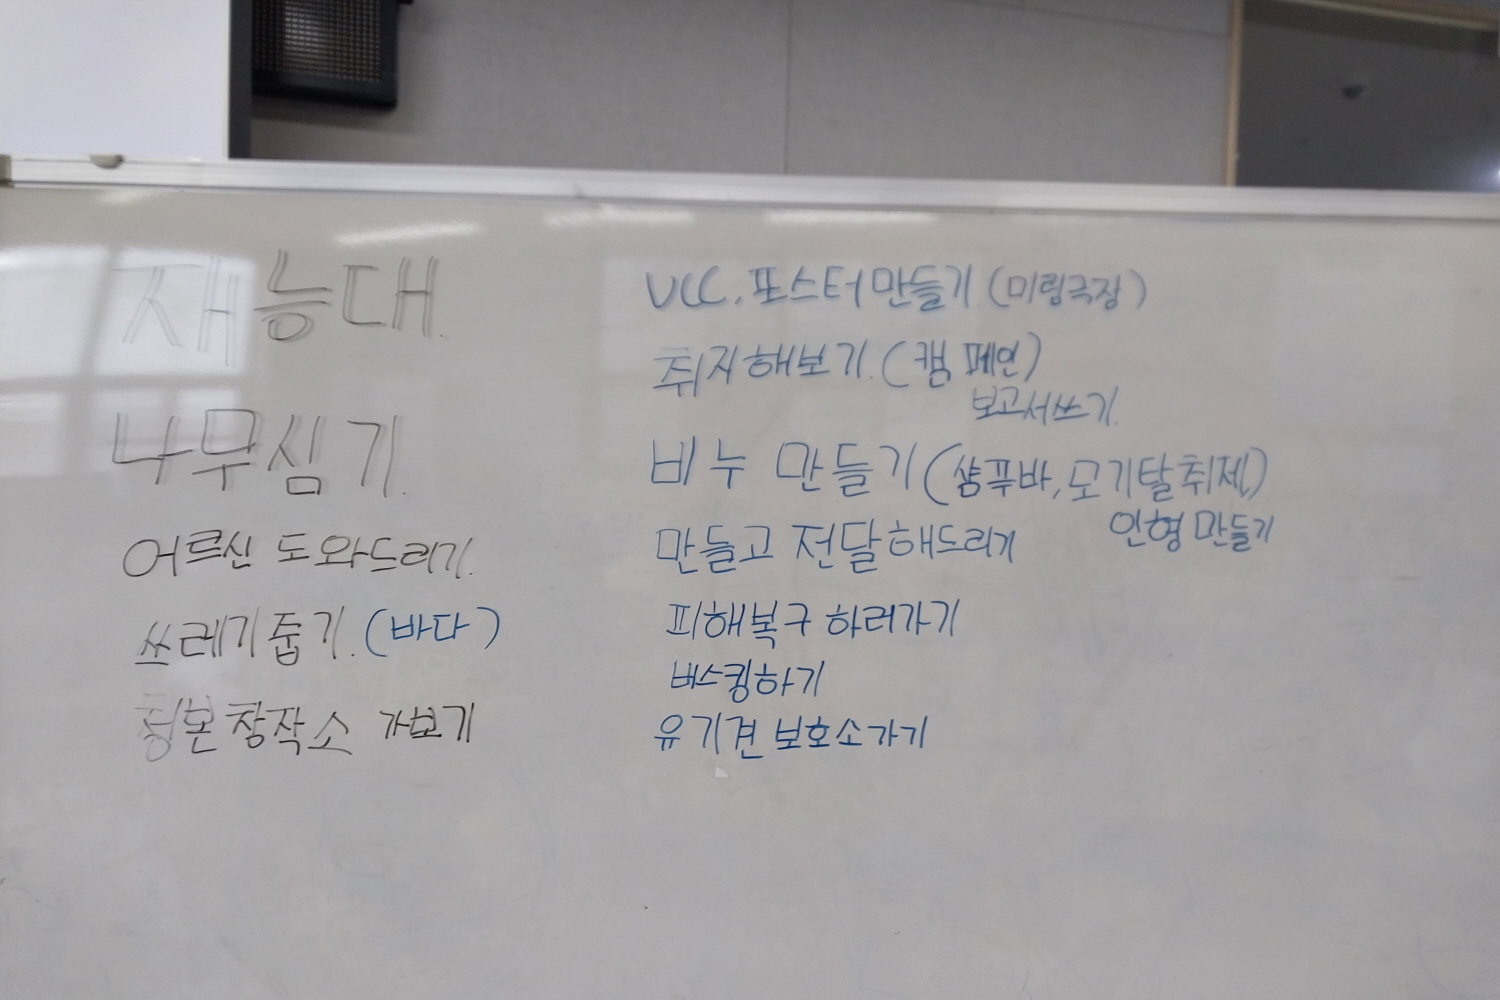 재능대.
나무심기.
어르신 도와드리기.
쓰레기줍기.(바다)
창작소 가보기
UCC. 포스터만들기.(미림극장)
취지해보기.(캠페인)
보고서쓰기.
비누 만들기(샴푸바, 모기탈취제)
인형 만들기
만들고 전달해드리기
피해복구 하러가기
버스킹하기
유기견 보호소가기